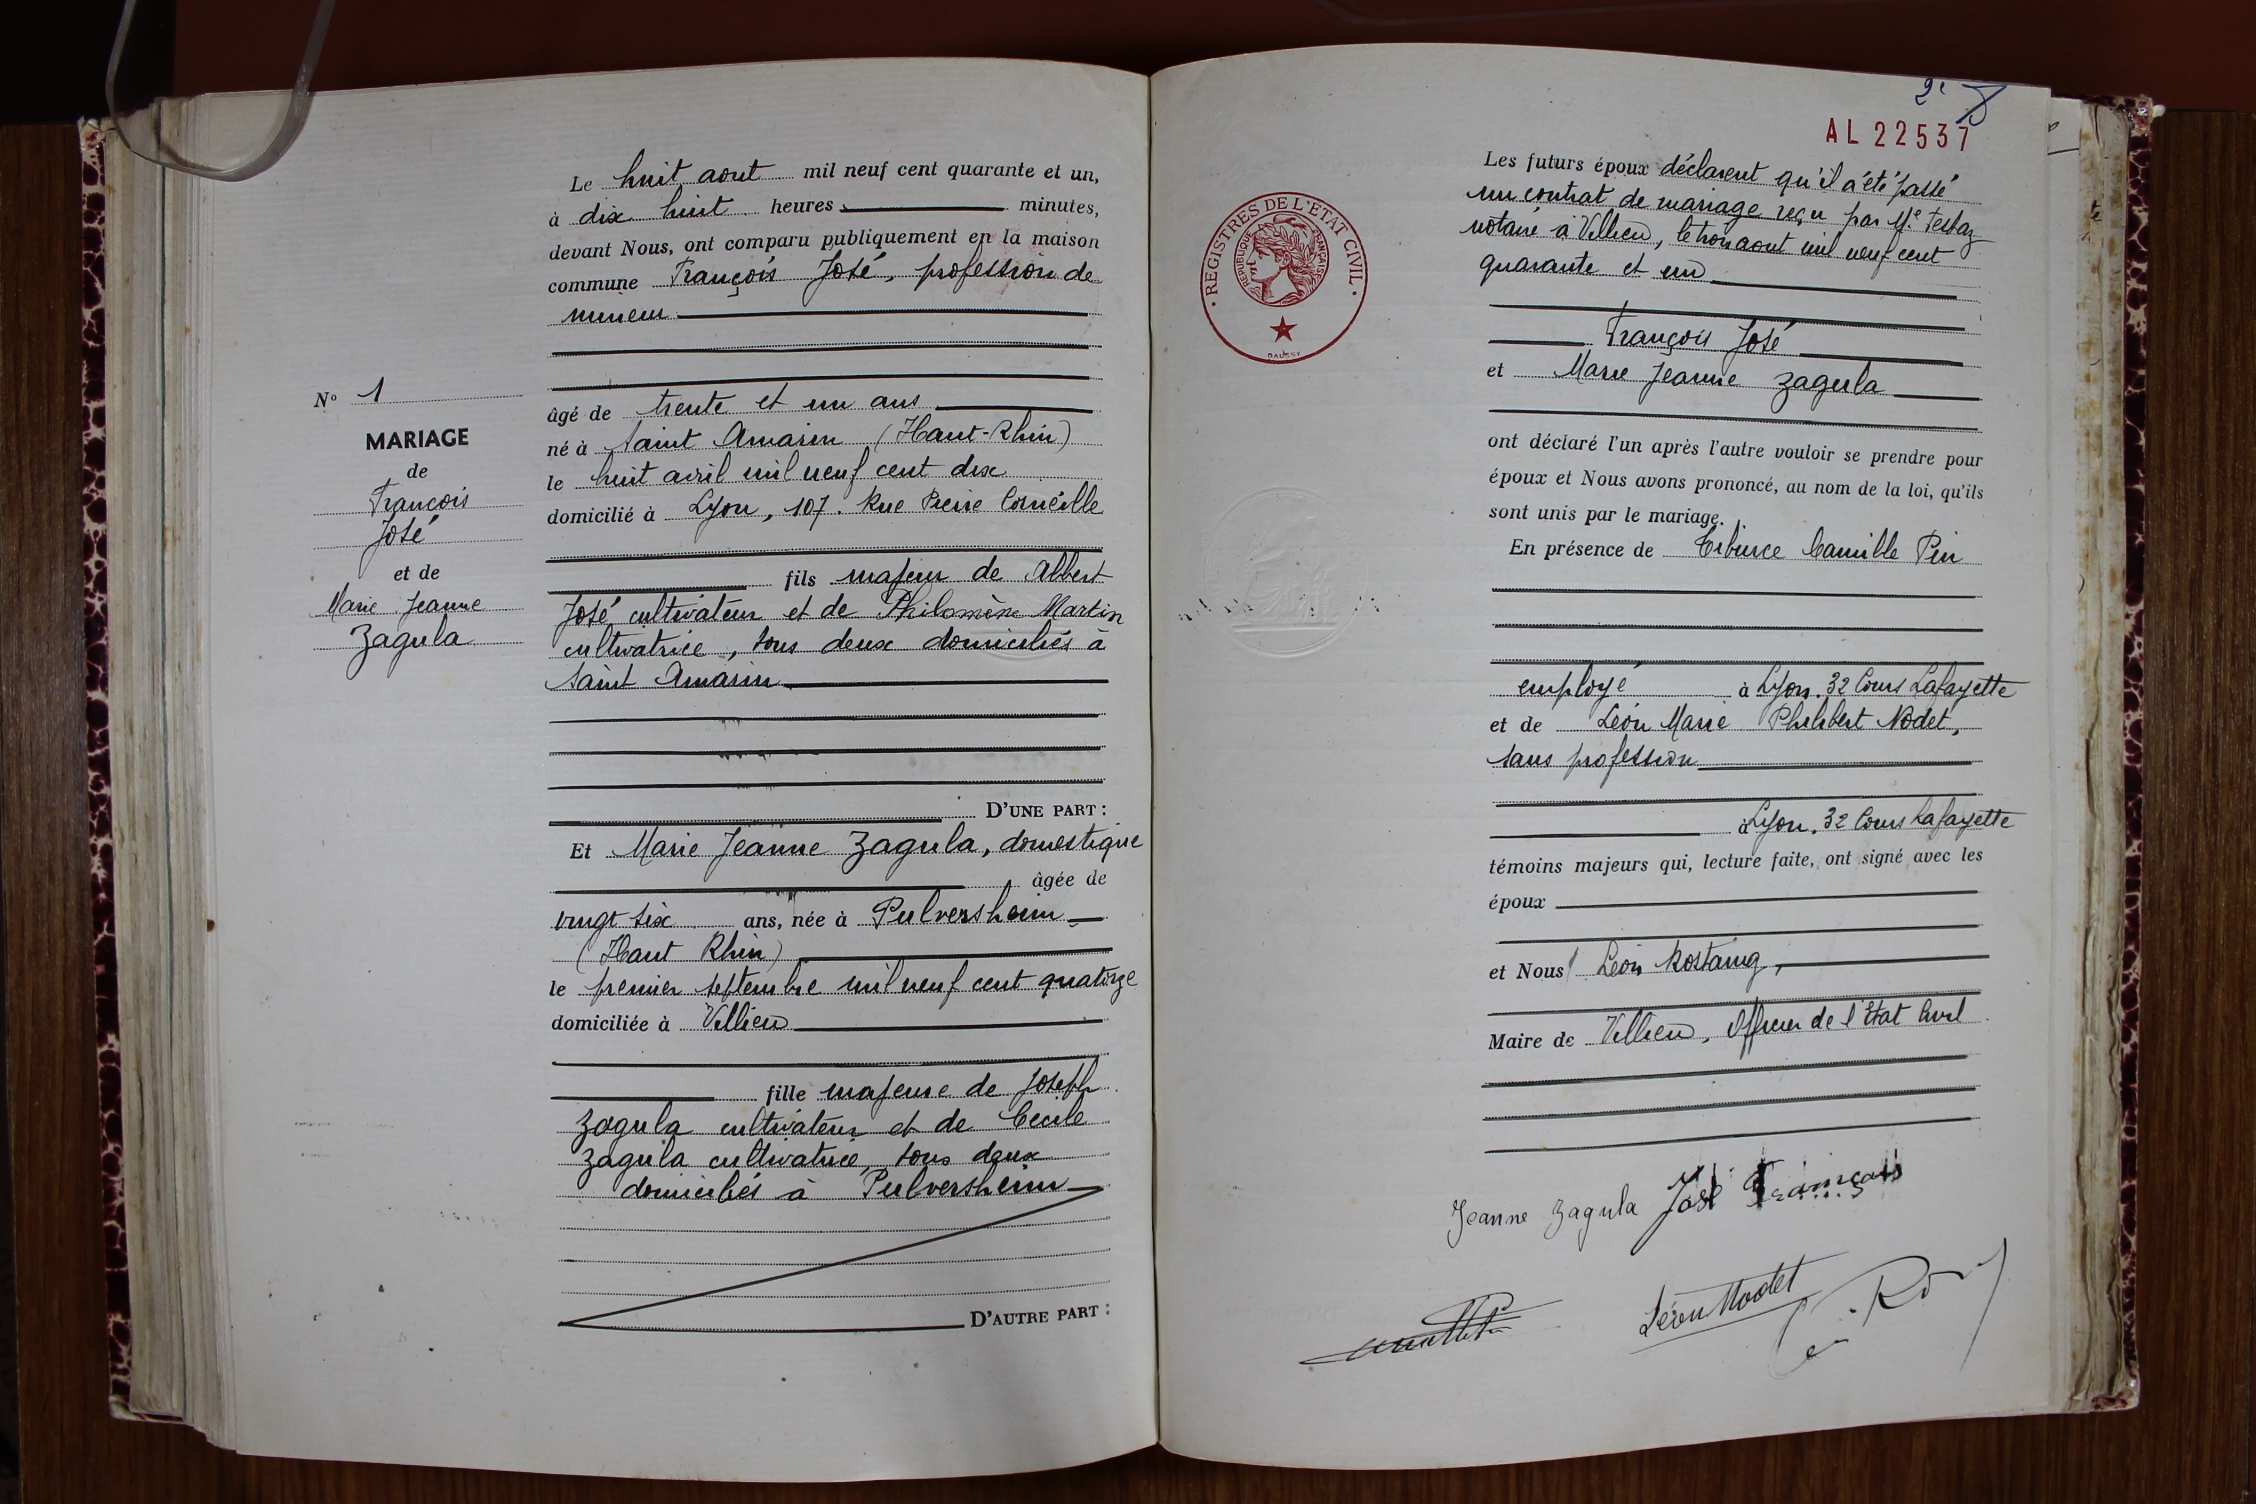 Le huit aout mil neuf cent quarante et un,
à dix huit heures minutes,
devant Nous, ont comparu publiquement en la maison
commune François José, profession de
mineur
N° 1
MARIAGE
de
François
José
et de
Marie Jeanne
Zagula
âgé de trente et un ans
né à Saint Amarin (Haut-Rhin)
le huit avril mil neuf cent dix
domicilié à Lyon, 107. Rue Pierre Corneille
fils majeur de Albert
José cultivateur et de Philomène Martin
cultivatrice, tous deux domiciliés à
Saint Amarin
D'UNE PART :
Et Marie Jeanne Zagula, domestique
âgée de
vingt six ans, née à Pulversheim
(Haut Rhin)
le premier septembre mil neuf cent quatorze
domiciliée à Villieu
fille majeure de Joseph
Zagula cultivateur et de Cécile
Zagula cultivatrice, tous deux
domiciliés à Pulversheim
D'AUTRE PART :
2e
AL 22537
REGISTRES DE L'ETAT CIVIL
REPUBLIQUE FRANÇAISE
Les futurs époux déclarent qu'il a été passé
un contrat de mariage reçu par Me
notaire à Villieu, le trois aout mil neuf cent
quarante et un
François José
et Marie Jeanne Zagula
ont déclaré l'un après l'autre vouloir se prendre pour
époux et Nous avons prononcé, au nom de la loi, qu'ils
sont unis par le mariage.
En présence de Tiburce Camille Pin
employé à Lyon. 32 Cours Lafayette
et de Léon Marie Philibert Nodet,
sans profession
à Lyon. 32 Cours Lafayette
témoins majeurs qui, lecture faite, ont signé avec les
époux
et Nous Léon Rostaing,
Maire de Villieu, Officier de l'Etat Civil
Jeanne Zagula José François
Léon Nodet